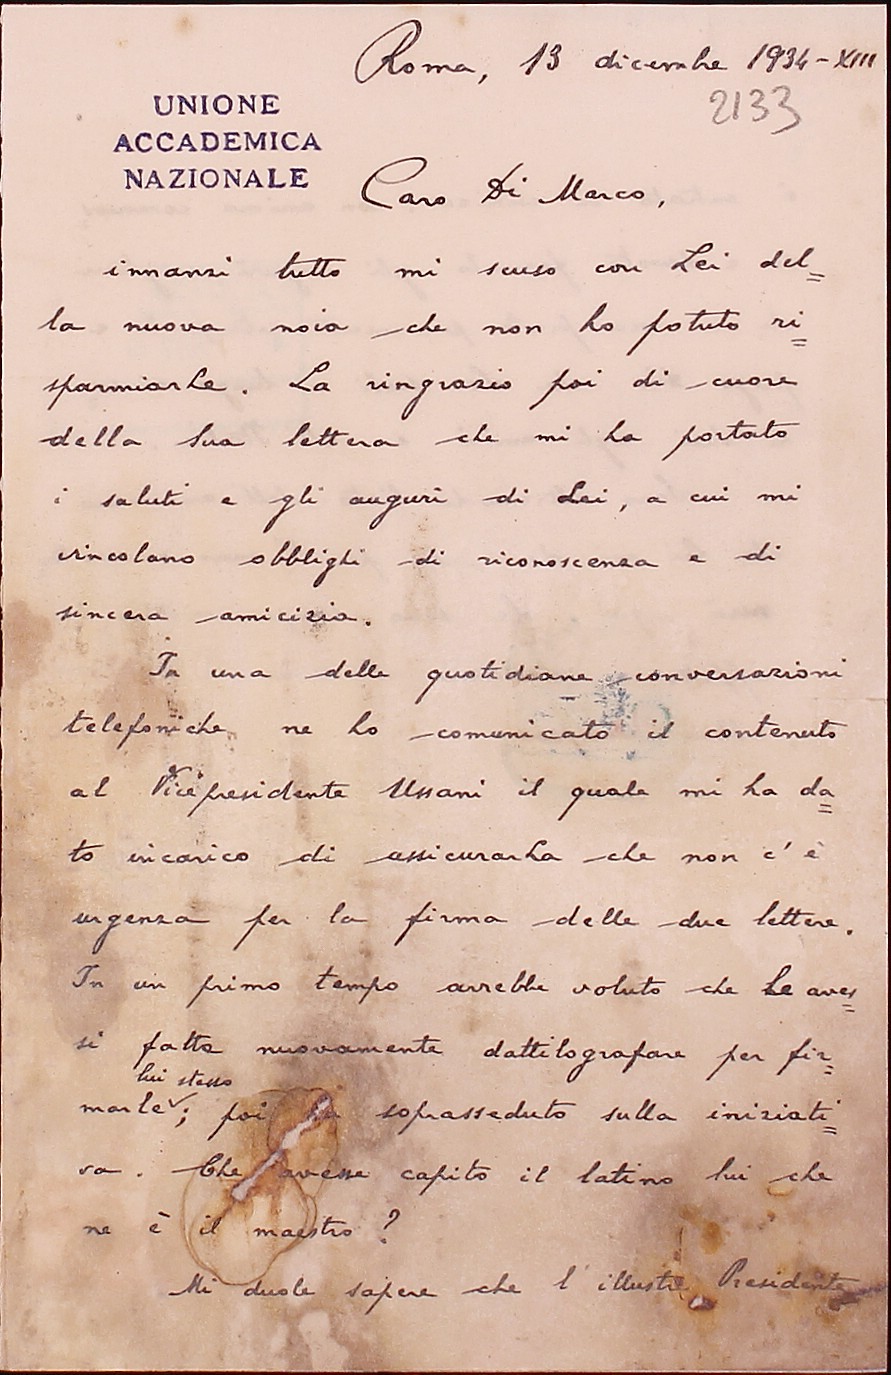 Roma, 13 dicembre 1934-XIII
2133
UNIONE
ACCADEMICA
NAZIONALE
Caro Di Marco,
innanzi tutto mi scuso con Lei del=
la nuova noia che non ho potuto ri=
sparmiarLe. La ringrazio poi di cuore
della Sua lettera che mi ha portato
i saluti e gli auguri di Lei, a cui mi
vincolano obblighi di riconoscenza e di
sincera amicizia.
In una delle quotidiane conversazioni
telefoniche, ne ho comunicato il contenuto
al Vicepresidente Ussani il quale mi ha da=
to incarico di assicurarLa che non c'è
urgenza per la firma delle due lettere.
In un primo tempo avrebbe voluto che Le aves=
si fatte nuovamente dattilografare per fir=
lui stesso
marle; poi ha soprasseduto sulla iniziati=
va. Che avesse capito il latino lui che
ne è il maestro?
Mi duole sapere che l'illustre Presidente